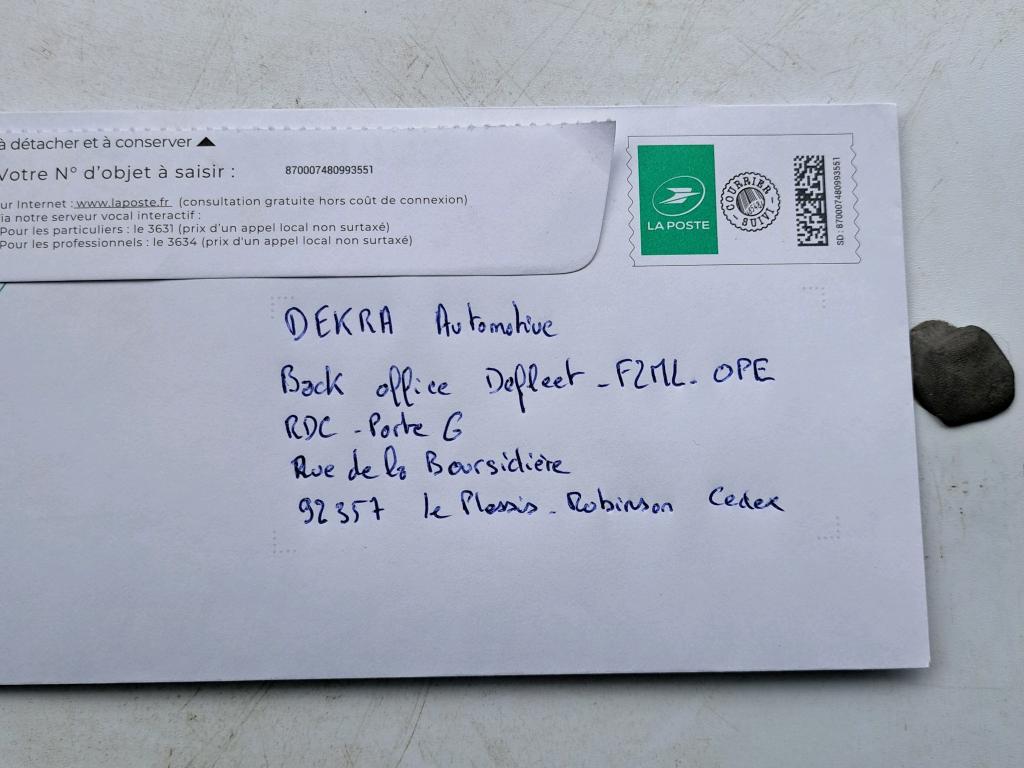 à détacher et à conserver
Votre N° d'objet à saisir : 870007480993551
ur Internet : www.laposte.fr (consultation gratuite hors coût de connexion)
ia notre serveur vocal interactif :
Pour les particuliers : le 3631 (prix d'un appel local non surtaxé)
Pour les professionnels : le 3634 (prix d'un appel local non surtaxé)
LA POSTE
COURRIER SUIVI
SD : 870007480993551
DEKRA Automotive
Back office Defleet - F2ML - OPE
RDC - Porte G
Rue de la Boursidière
92357 le Plessis - Robinson Cedex